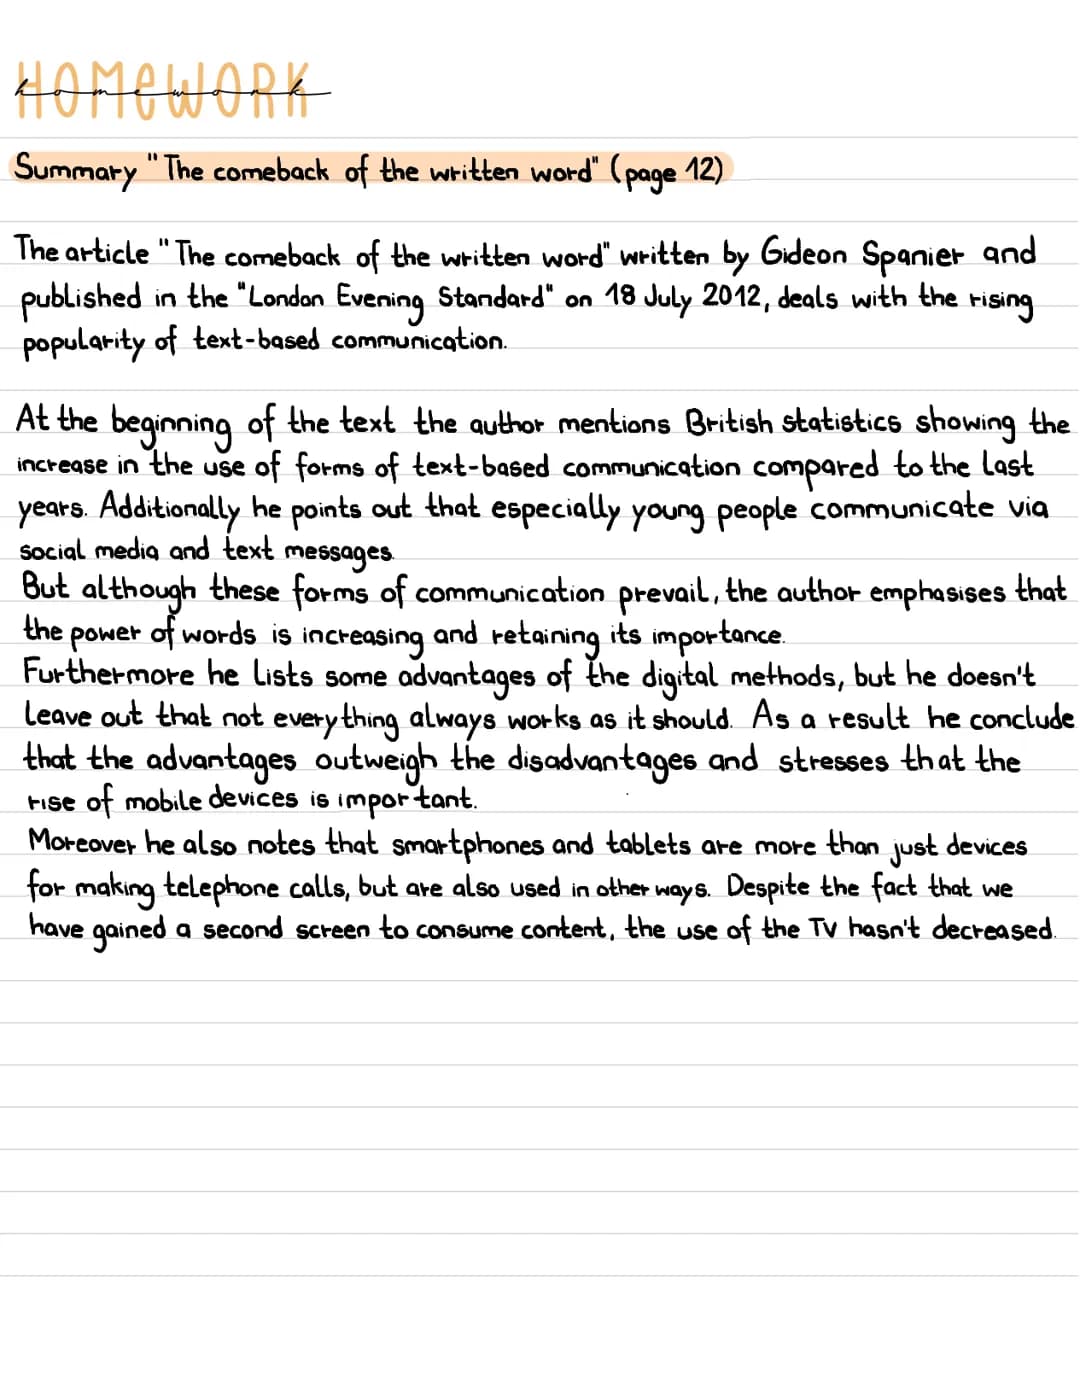 HOMEWORK
homework
Summary "The comeback of the written word" (page 12)
The article "The comeback of the written word" written by Gideon Spanier and
published in the "London Evening Standard" on 18 July 2012, deals with the rising
popularity of text-based communication.
At the beginning of the text the author mentions British statistics showing the
increase in the use of forms of text-based communication compared to the last
years. Additionally he points out that especially young people communicate via
social media and text messages.
But although these forms of communication prevail, the author emphasises that
the power of words is increasing and retaining its importance.
Furthermore he lists some advantages of the digital methods, but he doesn't
leave out that not everything always works as it should. As a result he conclude
that the advantages outweigh the disadvantages and stresses that the
rise of mobile devices is important.
Moreover he also notes that smartphones and tablets are more than just devices
for making telephone calls, but are also used in other ways. Despite the fact that we
have gained a second screen to consume content, the use of the TV hasn't decreased.